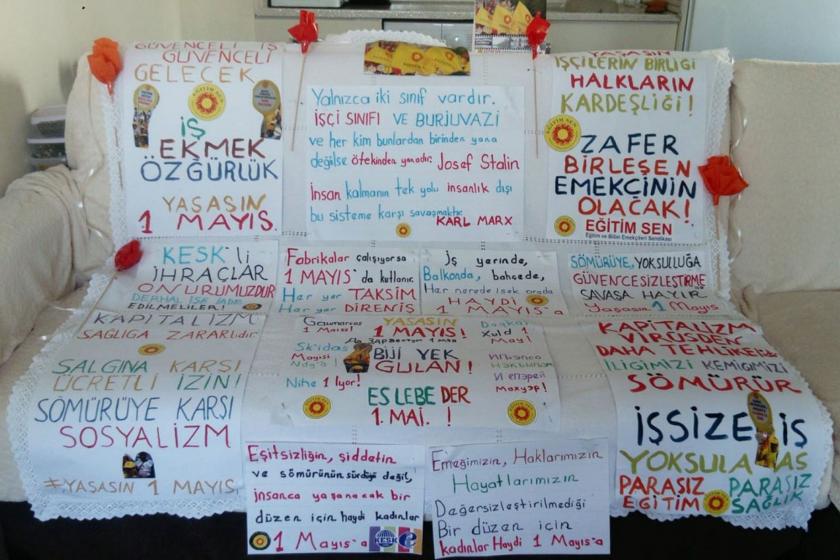 GÜVENCELİ İŞ
GÜVENCELİ
GELECEK
İŞ
EKMEK
ÖZGÜRLÜK
YAŞASIN
1 MAYIS.
Yalnızca iki sınıf vardır.
İŞÇİ SINIFI VE BURJUVAZİ
ve her kim bunlardan birinden yana
değilse ötekinden yanadır. Josef Stalin
İnsan kalmanın tek yolu insanlık dışı
bu sisteme karşı savaşmaktır.
KARL MARX
YAŞASIN
İŞÇİLERİN BİRLİĞİ
HALKLARIN
KARDEŞLİĞİ!
EĞİTİM SEN
ZAFER
BİRLEŞEN
EMEKÇİNİN
OLACAK!
EĞİTİM SEN
Eğitim ve Bilim Emekçileri Sendikası
KESK'li
İHRAÇLAR
ONURUMUZDUR
DERHAL İŞE İADE
EDİLMELİLER!
KAPİTALİZM
SAĞLIĞA ZARARlıdır.
SALGINA KARŞI
ÜCRETLİ İZİN!
SÖMÜRÜYE KARŞI
SOSYALİZM
#YAŞASIN 1 MAYIS.
Fabrikalar çalışıyorsa
1 MAYIS'da kutlanır.
Her yer TAKSİM
Her yer DİRENİŞ
İş yerinde,
Balkonda, bahçede,
Her nerede isek orada
HAYDİ 1 MAYIS'a
SÖMÜRÜYE, YOKSULLUĞA
GÜVENCESİZLEŞTİRME
SAVAŞA HAYIR
Yaşasın 1 Mayıs
YAŞASIN
1 MAYIS!
BIJİ YEK
GULAN!
ES LEBE DER
1. MAI. !
KAPİTALİZM
VİRÜSDEN
DAHA TEHLİKELİ
İLİĞİMİZİ KEMİĞİMİZİ
SÖMÜRÜR
İŞSİZE İŞ
PARASIZ
EĞİTİM
PARASIZ
SAĞLIK
Eşitsizliğin, şiddetin
ve sömürünün sürdüğü değil,
insanca yaşanacak bir
düzen için haydi kadınlar
1 Mayıs'a
KESK
Emeğimizin, Haklarımızın
Hayatlarımızın
Değersizleştirilmediği
Bir düzen için
kadınlar Haydi 1 Mayıs'a